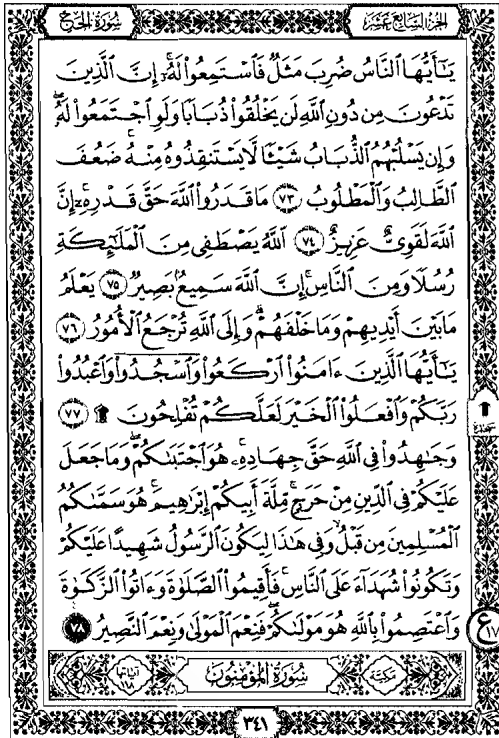 سُورَةُ الْحَجِّ الجُزْءُ السَّابِعُ عَشَرَ
يَـٰٓأَيُّهَا ٱلنَّاسُ ضُرِبَ مَثَلٌ فَٱسْتَمِعُوا۟ لَهُۥٓ ۚ إِنَّ ٱلَّذِينَ
تَدْعُونَ مِن دُونِ ٱللَّهِ لَن يَخْلُقُوا۟ ذُبَابًا وَلَوِ ٱجْتَمَعُوا۟ لَهُۥ ۖ
وَإِن يَسْلُبْهُمُ ٱلذُّبَابُ شَيْـًٔا لَّا يَسْتَنقِذُوهُ مِنْهُ ۚ ضَعُفَ
ٱلطَّالِبُ وَٱلْمَطْلُوبُ ٧٣ مَا قَدَرُوا۟ ٱللَّهَ حَقَّ قَدْرِهِۦٓ ۗ إِنَّ
ٱللَّهَ لَقَوِىٌّ عَزِيزٌ ٧٤ ٱللَّهُ يَصْطَفِى مِنَ ٱلْمَلَـٰٓئِكَةِ
رُسُلًا وَمِنَ ٱلنَّاسِ ۚ إِنَّ ٱللَّهَ سَمِيعٌۢ بَصِيرٌ ٧٥ يَعْلَمُ
مَا بَيْنَ أَيْدِيهِمْ وَمَا خَلْفَهُمْ ۗ وَإِلَى ٱللَّهِ تُرْجَعُ ٱلْأُمُورُ ٧٦
يَـٰٓأَيُّهَا ٱلَّذِينَ ءَامَنُوا۟ ٱرْكَعُوا۟ وَٱسْجُدُوا۟ وَٱعْبُدُوا۟
رَبَّكُمْ وَٱفْعَلُوا۟ ٱلْخَيْرَ لَعَلَّكُمْ تُفْلِحُونَ ۩ ٧٧
سجدة
وَجَـٰهِدُوا۟ فِى ٱللَّهِ حَقَّ جِهَادِهِۦ ۚ هُوَ ٱجْتَبَىٰكُمْ وَمَا جَعَلَ
عَلَيْكُمْ فِى ٱلدِّينِ مِنْ حَرَجٍ ۚ مِّلَّةَ أَبِيكُمْ إِبْرَٰهِيمَ ۚ هُوَ سَمَّىٰكُمُ
ٱلْمُسْلِمِينَ مِن قَبْلُ وَفِى هَـٰذَا لِيَكُونَ ٱلرَّسُولُ شَهِيدًا عَلَيْكُمْ
وَتَكُونُوا۟ شُهَدَآءَ عَلَى ٱلنَّاسِ ۚ فَأَقِيمُوا۟ ٱلصَّلَوٰةَ وَءَاتُوا۟ ٱلزَّكَوٰةَ
وَٱعْتَصِمُوا۟ بِٱللَّهِ هُوَ مَوْلَىٰكُمْ ۖ فَنِعْمَ ٱلْمَوْلَىٰ وَنِعْمَ ٱلنَّصِيرُ ٧٨
ع ١٧
مكية سُورَةُ الْمُؤْمِنُونَ آياتها ١١٨
٣٤١